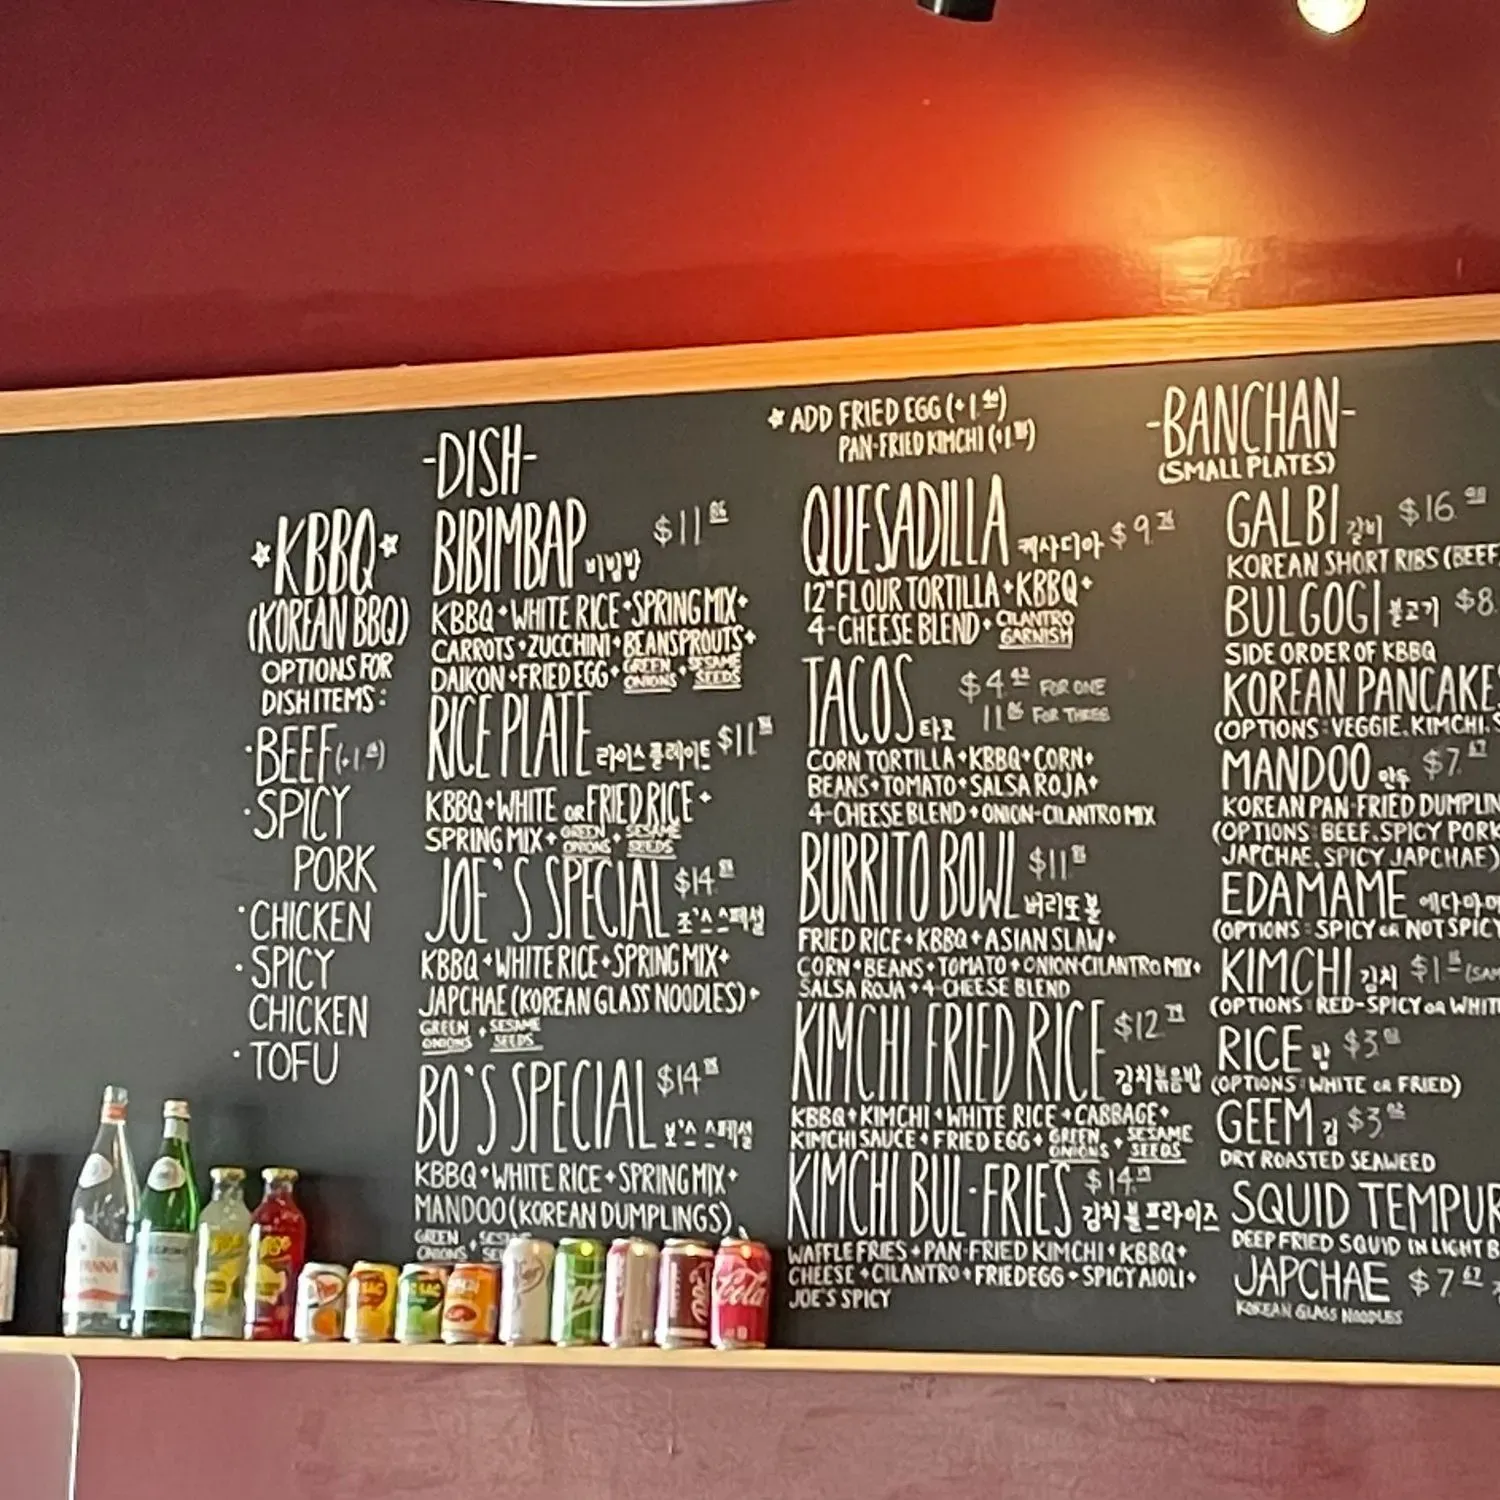 *KBBQ*
(KOREAN BBQ)
OPTIONS FOR
DISH ITEMS:
·BEEF
·SPICY
PORK
·CHICKEN
·SPICY
CHICKEN
·TOFU
-DISH-
BIBIMBAP 비빔밥 $11
KBBQ+WHITE RICE+SPRING MIX+
CARROTS+ZUCCHINI+BEANSPROUTS+
DAIKON+FRIED EGG+GREEN ONIONS+SESAME SEEDS
RICE PLATE 라이스 플레이트 $11
KBBQ+WHITE OR FRIED RICE+
SPRING MIX+GREEN ONIONS+SESAME SEEDS
JOE'S SPECIAL $14
조'스 스페셜
KBBQ+WHITE RICE+SPRING MIX+
JAPCHAE (KOREAN GLASS NOODLES)+
GREEN ONIONS+SESAME SEEDS
BO'S SPECIAL $14
보'스 스페셜
KBBQ+WHITE RICE+SPRING MIX+
MANDOO (KOREAN DUMPLINGS)
GREEN ONIONS+
*ADD FRIED EGG
PAN-FRIED KIMCHI
QUESADILLA 케사디아 $9
12" FLOUR TORTILLA+KBBQ+
4-CHEESE BLEND+CILANTRO GARNISH
TACOS 타코 $4 FOR ONE
11 FOR THREE
CORN TORTILLA+KBBQ+CORN+
BEANS+TOMATO+SALSA ROJA+
4-CHEESE BLEND+ONION-CILANTRO MIX
BURRITO BOWL $11
버리또 볼
FRIED RICE+KBBQ+ASIAN SLAW+
CORN+BEANS+TOMATO+ONION-CILANTRO MIX+
SALSA ROJA+4-CHEESE BLEND
KIMCHI FRIED RICE $12
김치볶음밥
KBBQ+KIMCHI+WHITE RICE+CABBAGE+
KIMCHI SAUCE+FRIED EGG+GREEN ONIONS+SESAME SEEDS
KIMCHI BUL-FRIES $14
김치불프라이즈
WAFFLE FRIES+PAN FRIED KIMCHI+KBBQ+
CHEESE+CILANTRO+FRIED EGG+SPICY AIOLI+
JOE'S SPICY
-BANCHAN-
(SMALL PLATES)
GALBI 갈비 $16
KOREAN SHORT RIBS (BEEF
BULGOGI 불고기 $8
SIDE ORDER OF KBBQ
KOREAN PANCAKE
(OPTIONS: VEGGIE, KIMCHI,
MANDOO 만두 $7
KOREAN PAN-FRIED
(OPTIONS: BEEF, SPICY PORK
JAPCHAE, SPICY JAPCHAE)
EDAMAME
(OPTIONS: SPICY OR NOT SPICY
KIMCHI 김치 $1
(OPTIONS: RED-SPICY OR
RICE 밥 $3
(OPTIONS: WHITE OR FRIED)
GEEM 김 $3
DRY ROASTED SEAWEED
SQUID
DEEP FRIED SQUID IN LIGHT
JAPCHAE $7
KOREAN GLASS NOODLES
Coca-Cola